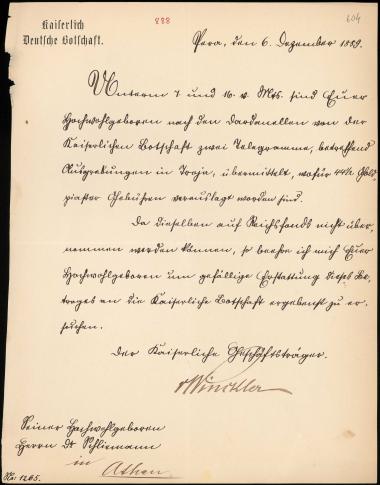 604
888
Kaiserlich
Deutsche Botschaft.
Pera, den 6. Dezember 1889.
Unterm 7 und 16. v. Mts. sind Euer
Hochwohlgeboren nach den Dardanellen von der
Kaiserlichen Botschaft zwei Telegramme, betreffend
Ausgrabungen in Troja, übermittelt, wofür 44½ Gold
piaster Gebühren verauslagt worden sind.
Da dieselben auf Reichsfonds nicht über-
nommen werden können, so beehre ich mich Euer
Hochwohlgeboren um gefällige Erstattung dieses Be-
trages an die Kaiserliche Botschaft ergebenst zu er-
suchen.
Der Kaiserliche Geschäftsträger.
vWinckler
Seiner Hochwohlgeboren
Herrn Dr Schliemann
in
Athen.
No: 1265.